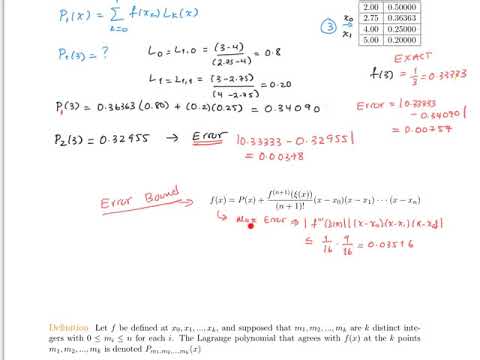 P₁(x) = Σ f(xₖ) Lₖ(x)
k=0
2.00 0.50000
③ x₀ 2.75 0.36363
x₁ 4.00 0.25000
5.00 0.20000
P₁(3) = ?
L₀ = L₁,₀ = (3-4)/(2.75-4) = 0.8
L₁ = L₁,₁ = (3-2.75)/(4-2.75) = 0.20
EXACT
f(3) = 1/3 = 0.33333
P₁(3) = 0.36363(0.80) + (0.2)(0.25) = 0.34090
Error = |0.33333 - 0.34090|
= 0.00757
P₂(3) = 0.32955 → Error |0.33333 - 0.32955|
= 0.00378
Error Bound → f(x) = P(x) + f⁽ⁿ⁺¹⁾(ξ(x))/(n+1)! (x − x₀)(x − x₁) ⋯ (x − xₙ)
↳ Max Error ⇒ | f'''(ξ(x)) | | (x-x₀)(x-x₁)(x-x₂) |
≤ 1/16 · 9/16 = 0.03516
Definition Let f be defined at x₀, x₁, ..., xₖ, and supposed that m₁, m₂, ..., mₖ are k distinct inte-
gers with 0 ≤ mᵢ ≤ n for each i. The Lagrange polynomial that agrees with f(x) at the k points
m₁, m₂, ..., mₖ is denoted Pm₁,m₂,...,mₖ(x)